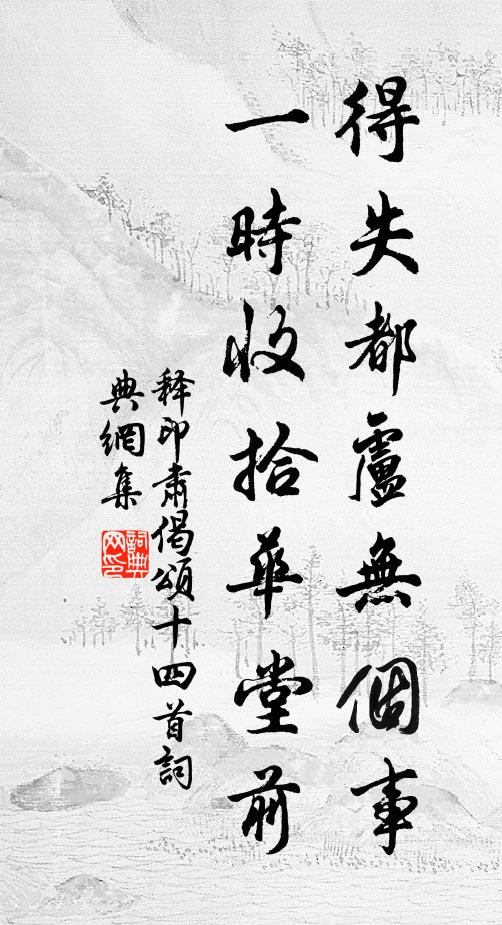 得失都盧無個事
一時收拾華堂前
释印肃偈頌十四首詞
典網集
詞典
网印